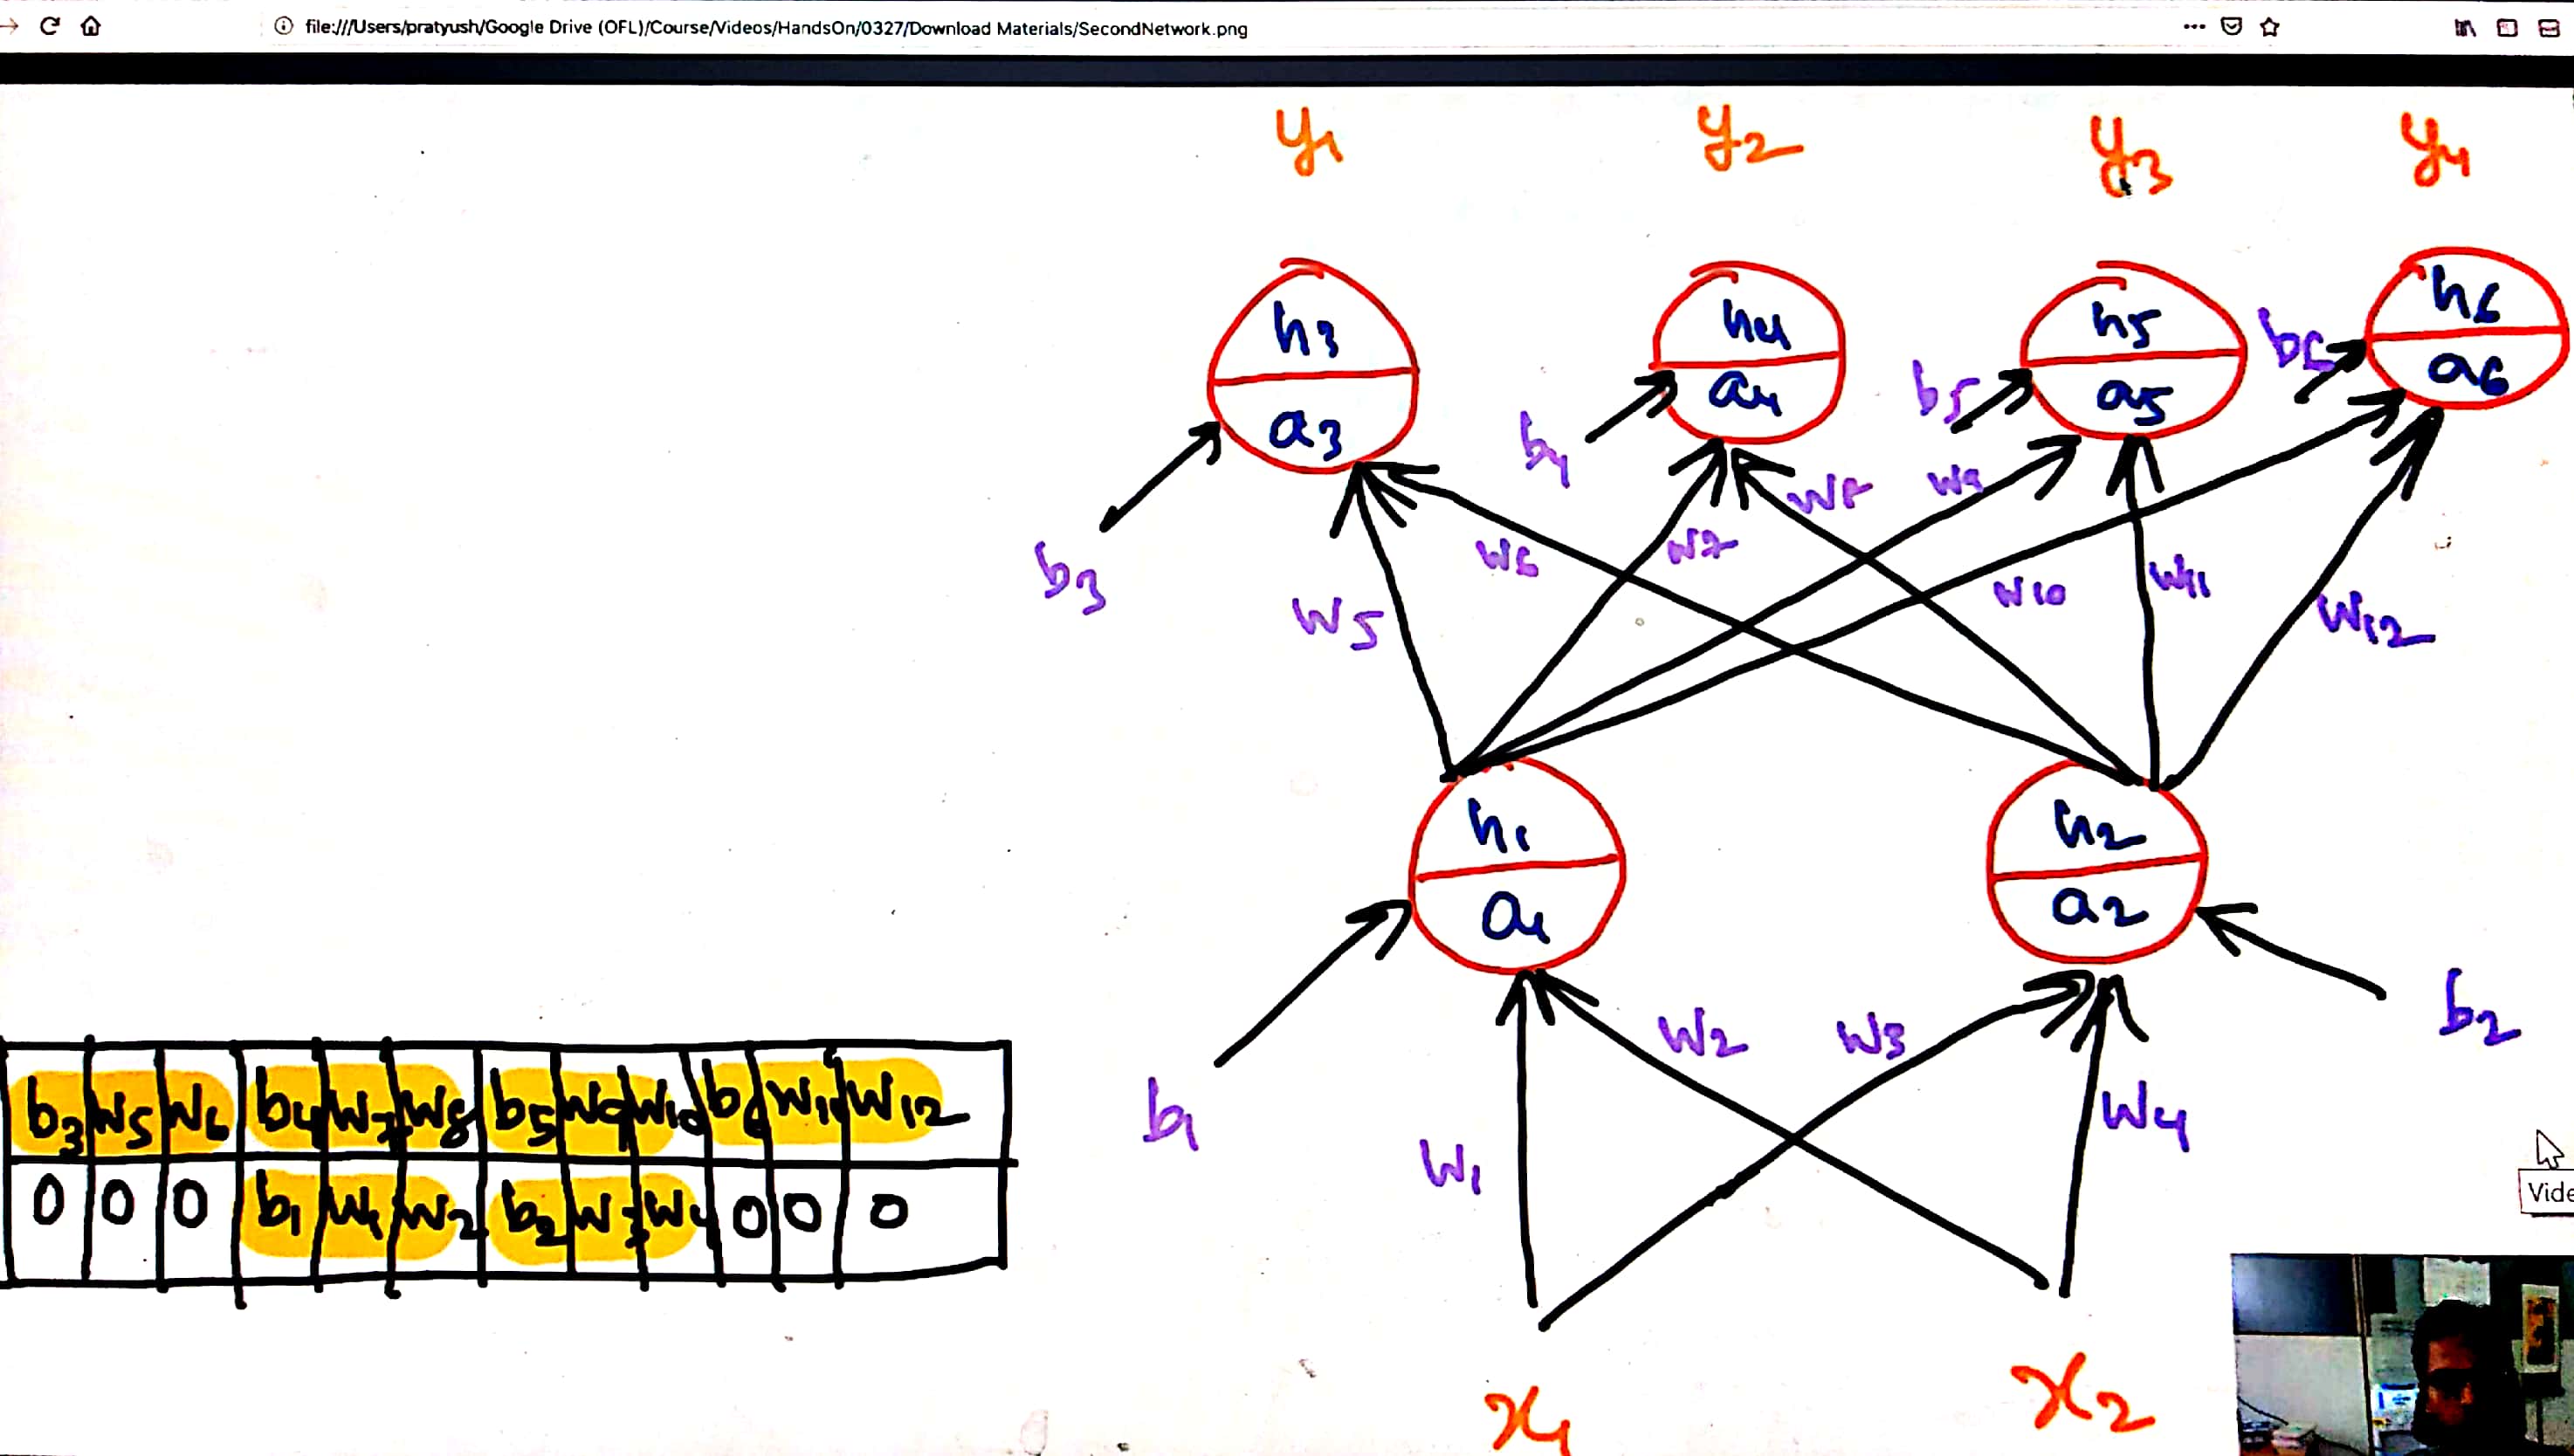 file:///Users/pratyush/Google Drive (OFL)/Course/Videos/HandsOn/0327/Download Materials/SecondNetwork.png
y1 y2 y3 y4
h3 h4 h5 h6
a3 a4 a5 a6
b3 b4 b5 b6
w5 w6 w7 w8 w9 w10 w11 w12
h1 h2
a1 a2
b1 b2
w1 w2 w3 w4
x1 x2
b3 w5 w6 b4 w7 w8 b5 w9 w10 b6 w11 w12
0 0 0 b1 w1 w2 b2 w3 w4 0 0 0
Vide